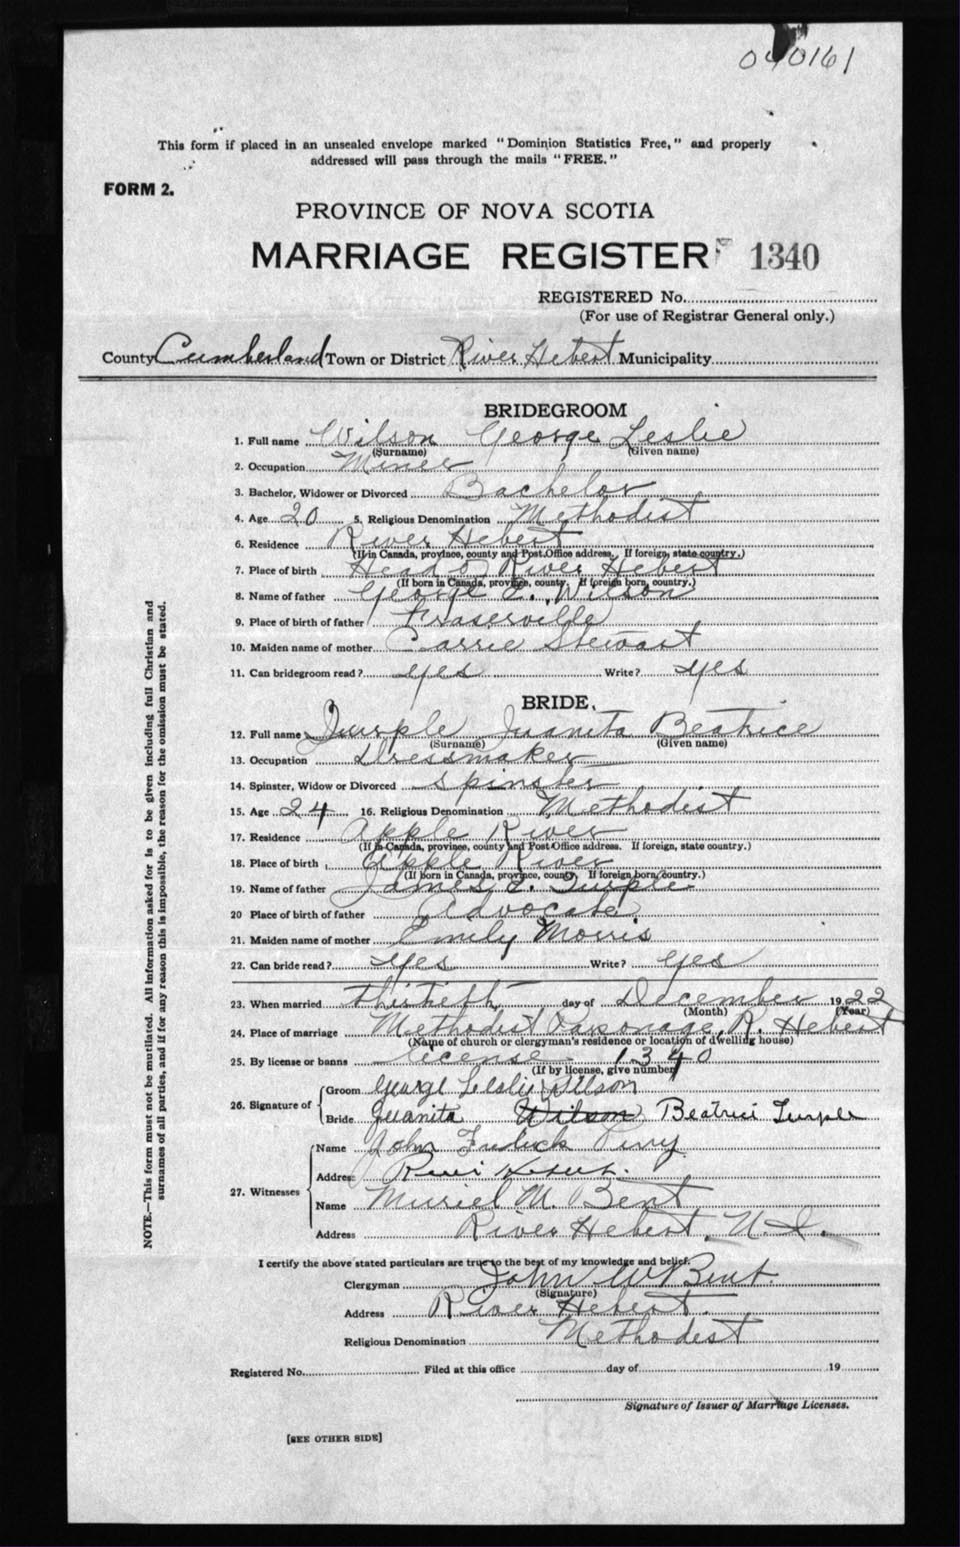 040161
This form if placed in an unsealed envelope marked "Dominion Statistics Free," and properly
addressed will pass through the mails "FREE."
FORM 2.
PROVINCE OF NOVA SCOTIA
MARRIAGE REGISTER 1340
REGISTERED No.
(For use of Registrar General only.)
County Cumberland Town or District River Hebert Municipality
BRIDEGROOM
1. Full name Wilson George Leslie
(Surname) (Given name)
2. Occupation Miner
3. Bachelor, Widower or Divorced Bachelor
4. Age 20 5. Religious Denomination Methodist
6. Residence River Hebert
(If in Canada, province, county and Post Office address. If foreign, state country.)
7. Place of birth Head of River Hebert
(If born in Canada, province, county. If foreign born, country.)
8. Name of father George E. Wilson
9. Place of birth of father Fraserville
10. Maiden name of mother Carrie Stewart
11. Can bridegroom read? yes Write? yes
BRIDE.
12. Full name Turple Juanita Beatrice
(Surname) (Given name)
13. Occupation Dressmaker
14. Spinster, Widow or Divorced Spinster
15. Age 24 16. Religious Denomination Methodist
17. Residence Apple River
(If in Canada, province, county and Post Office address. If foreign, state country.)
18. Place of birth Apple River
(If born in Canada, province, county. If foreign born, country.)
19. Name of father James E. Turple
20 Place of birth of father Advocate
21. Maiden name of mother Emily Morris
22. Can bride read? yes Write? yes
23. When married thirtieth day of December 1922
(Month) (Year)
24. Place of marriage Methodist Parsonage, R. Hebert
(Name of church or clergyman's residence or location of dwelling house)
25. By license or banns license 1340
(If by license, give number)
26. Signature of Groom George Leslie Wilson
Bride Juanita Wilson Beatrice Turple
27. Witnesses Name John Fredrick Perry
Address River Hebert.
Name Muriel M. Bent
Address River Hebert, N.S.
I certify the above stated particulars are true to the best of my knowledge and belief.
Clergyman John W Bent.
(Signature)
Address River Hebert.
Religious Denomination Methodist
Registered No. Filed at this office day of 19
Signature of Issuer of Marriage Licenses.
[SEE OTHER SIDE]
NOTE.—This form must not be mutilated. All information asked for is to be given including full Christian and
surnames of all parties, and if for any reason this is impossible, the reason for the omission must be stated.